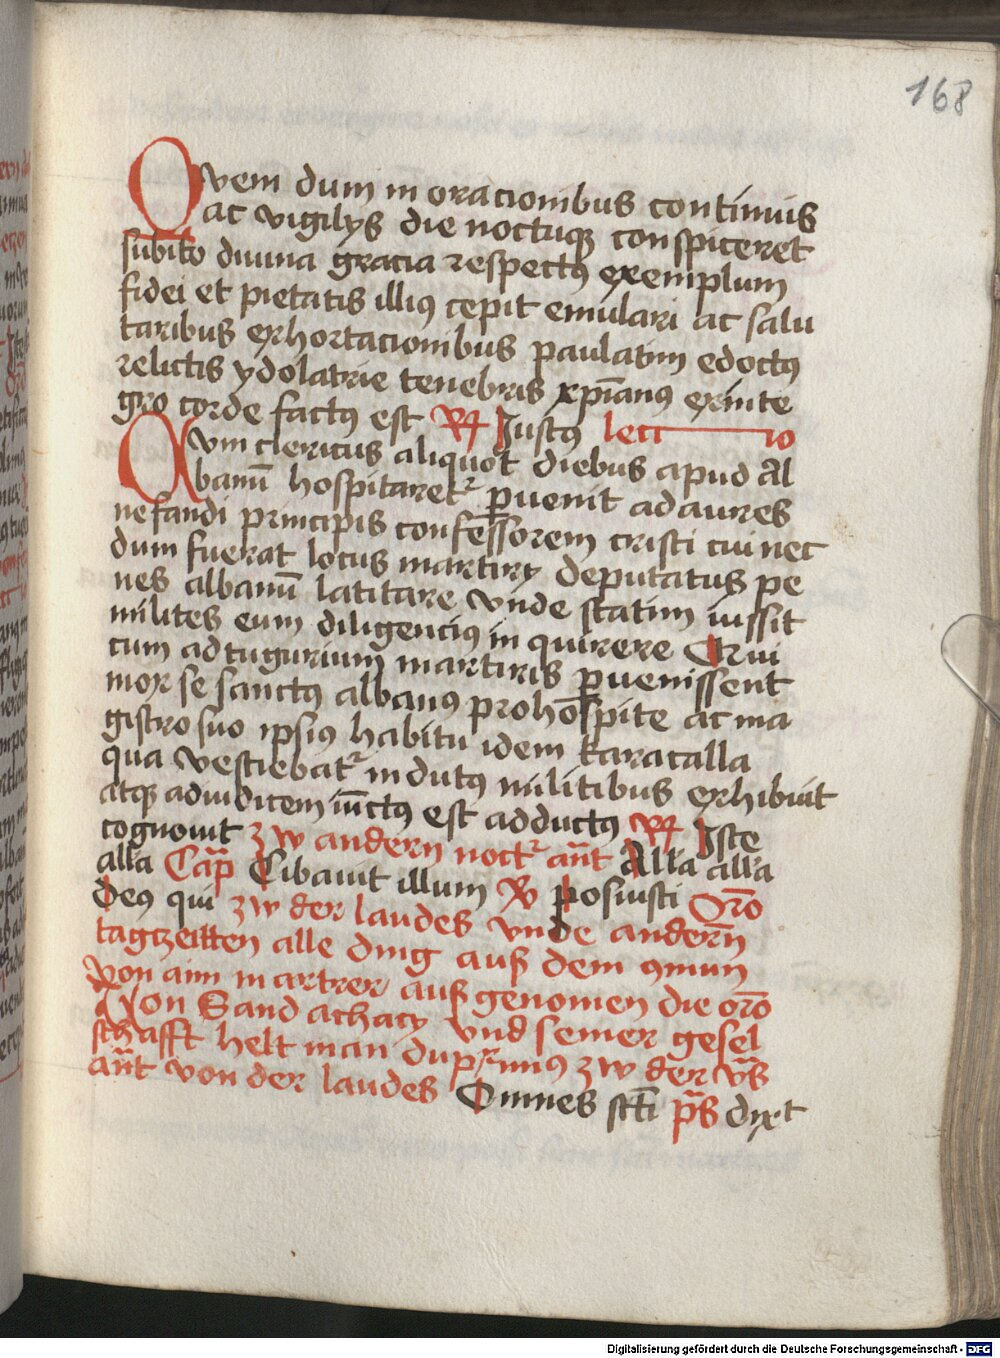 168
Quem dum in oracionibus continuis
ac vigilys die noctuq conspiceret
subito diuina gracia respectus exemplum
fidei et pietatis illius cepit emulari ac salu
taribus exhortacionibus paulatim edoctus
relictis ydolatrie tenebris xpianus ex inte
gro corde factus est R Justus lectio
Qum clericus aliquot diebus apud Al
banū hospitaretr puenit ad aures
nefandi principis confessorem cristi cui nec
dum fuerat locus martiry deputatus pe
nes albanū latitare vnde statim iussit
milites eum diligencius in quirere Qui
cum ad tugurium martiris puenissent
mox se sanctus albanus pro hospite ac ma
gistro suo ipsius habitu idem karacalla
qua vestiebatr in dutus militibus exhibuit
atq ad iudicem iūctus est adductus R Iste
cognouit zw andern noctr an̄t Alla alla
alla Cap̄ Cibauit illum V posuisti Oro
Deus qui zw der laudes vnde andern
tagzeitten alle ding auß dem gmun
von aim martrer auß genomen die oro
Von Sand achacy vnd seiner gesel
schafft helt man du primus zw der vs
an̄t von der laudes Omnes scti ps dixt
Digitalisierung gefördert durch die Deutsche Forschungsgemeinschaft - DFG